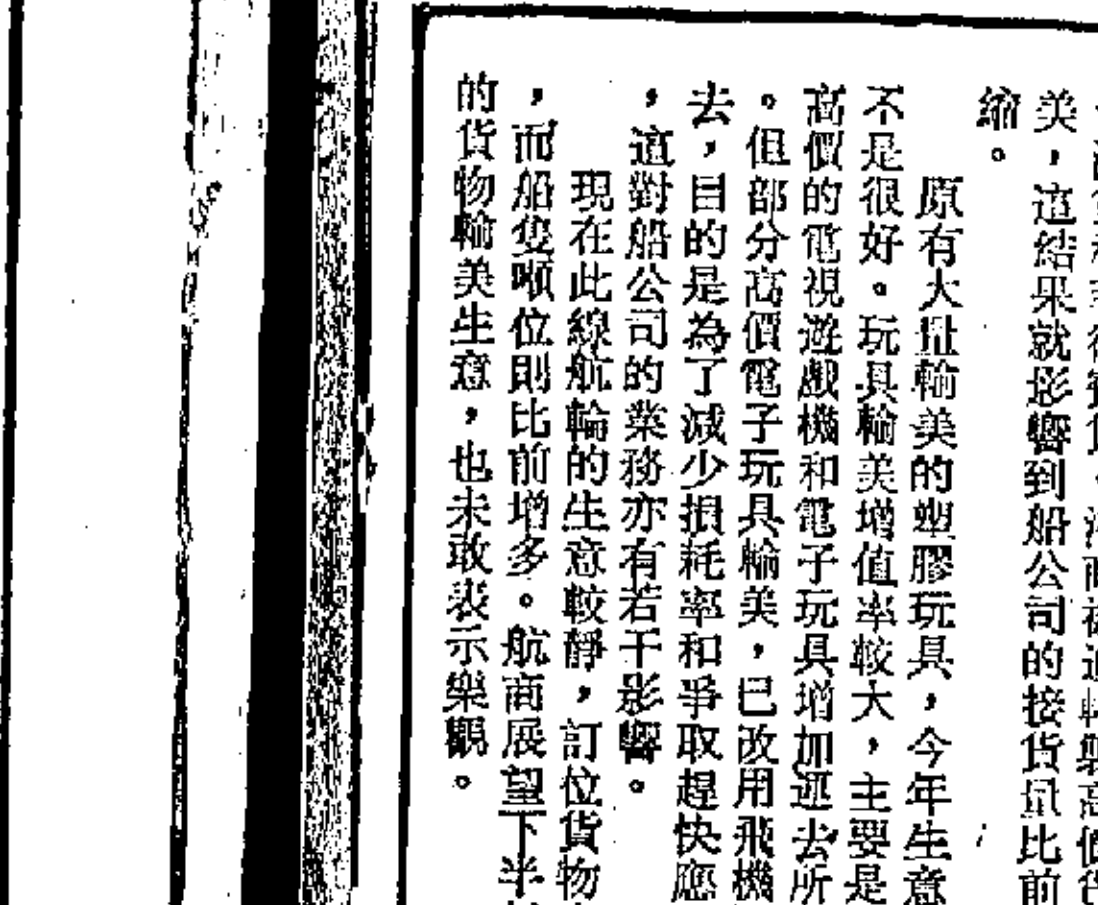 美，這結果就影響到船公司的接貨量比前
縮。
原有大量輸美的塑膠玩具，今年生意
不是很好。玩具輸美增值率較大，主要是
高價的電視遊戲機和電子玩具增加運去所
。但部分高價電子玩具輸美，已改用飛機
去，目的是為了減少損耗率和爭取趕快應
，這對船公司的業務亦有若干影響。
現在此線航輪的生意較靜，訂位貨物
，而船隻噸位則比前增多。航商展望下半
的貨物輸美生意，也未敢表示樂觀。